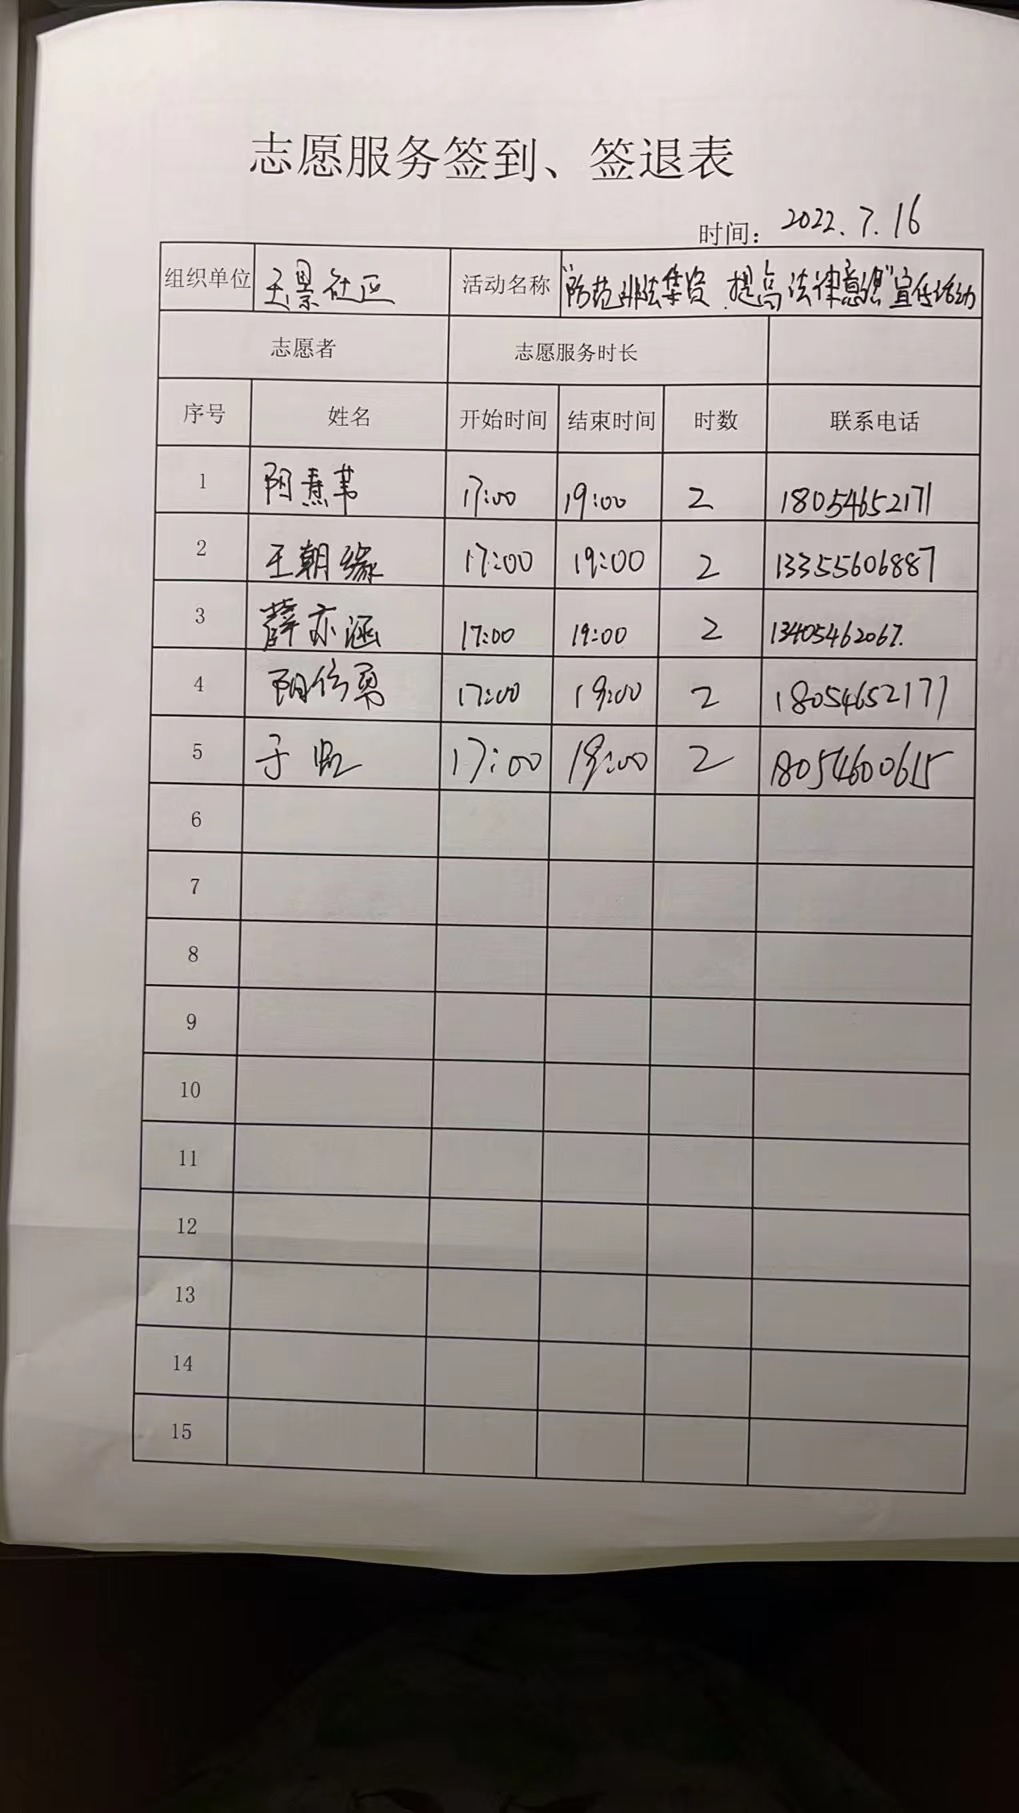 志愿服务签到、签退表
时间: 2022.7.16
组织单位 玉景社区 活动名称 "防范非法集资 提高法律意识"宣传活动
志愿者 志愿服务时长
序号 姓名 开始时间 结束时间 时数 联系电话
1 17:00 19:00 2 18054652171
2 王朝缘 17:00 19:00 2 13355606887
3 薛亦涵 17:00 19:00 2 13405462067.
4 17:00 19:00 2 18054652171
5 17:00 19:00 2 18054600615
6
7
8
9
10
11
12
13
14
15